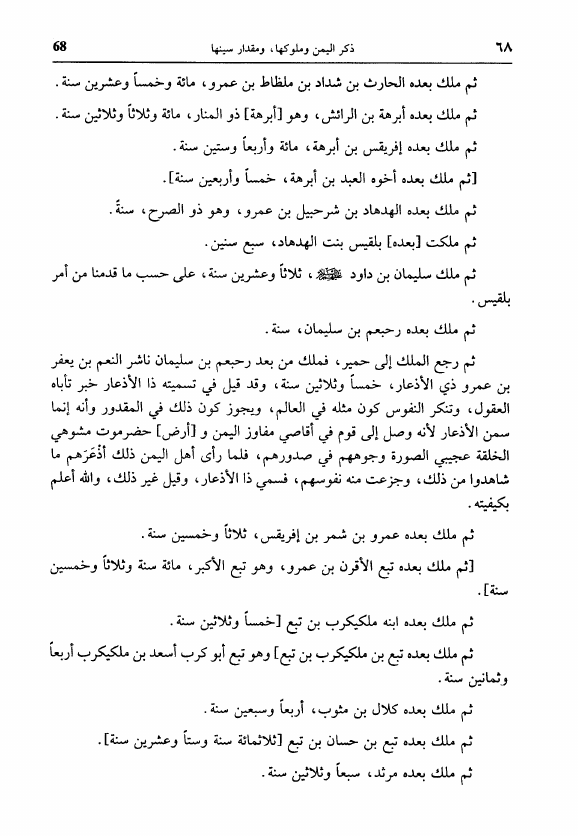 ٦٨ ذكر اليمن وملوكها، ومقدار سينها 68
ثم ملك بعده الحارث بن شداد بن ملظاط بن عمرو، مائة وخمساً وعشرين سنة.
ثم ملك بعده أبرهة بن الرائش، وهو [أبرهة] ذو المنار، مائة وثلاثاً وثلاثين سنة.
ثم ملك بعده إفريقس بن أبرهة، مائة وأربعاً وستين سنة.
[ثم ملك بعده أخوه العبد بن أبرهة، خمساً وأربعين سنة].
ثم ملك بعده الهدهاد بن شرحبيل بن عمرو، وهو ذو الصرح، سنةً.
ثم ملكت [بعده] بلقيس بنت الهدهاد، سبع سنين.
ثم ملك سليمان بن داود ﷺ، ثلاثاً وعشرين سنة، على حسب ما قدمنا من أمر
بلقيس.
ثم ملك بعده رحبعم بن سليمان، سنة.
ثم رجع الملك إلى حمير، فملك من بعد رحبعم بن سليمان ناشر النعم بن يعفر
بن عمرو ذي الأذعار، خمساً وثلاثين سنة، وقد قيل في تسميته ذا الأذعار خبر تأباه
العقول، وتنكر النفوس كون مثله في العالم، ويجوز كون ذلك في المقدور وأنه إنما
سمن الأذعار لأنه وصل إلى قوم في أقاصي مفاوز اليمن و [أرض] حضرموت مشوهي
الخلقة عجيبي الصورة وجوههم في صدورهم، فلما رأى أهل اليمن ذلك أذْعَرَهم ما
شاهدوا من ذلك، وجزعت منه نفوسهم، فسمي ذا الأذعار، وقيل غير ذلك، والله أعلم
بكيفيته.
ثم ملك بعده عمرو بن شمر بن إفريقس، ثلاثاً وخمسين سنة.
[ثم ملك بعده تبع الأقرن بن عمرو، وهو تبع الأكبر، مائة سنة وثلاثاً وخمسين
سنة].
ثم ملك بعده ابنه ملكيكرب بن تبع [خمساً وثلاثين سنة.
ثم ملك بعده تبع بن ملكيكرب بن تبع] وهو تبع أبو كرب أسعد بن ملكيكرب أربعاً
وثمانين سنة.
ثم ملك بعده كلال بن مثوب، أربعاً وسبعين سنة.
ثم ملك بعده تبع بن حسان بن تبع [ثلاثمائة سنة وستاً وعشرين سنة].
ثم ملك بعده مرثد، سبعاً وثلاثين سنة.